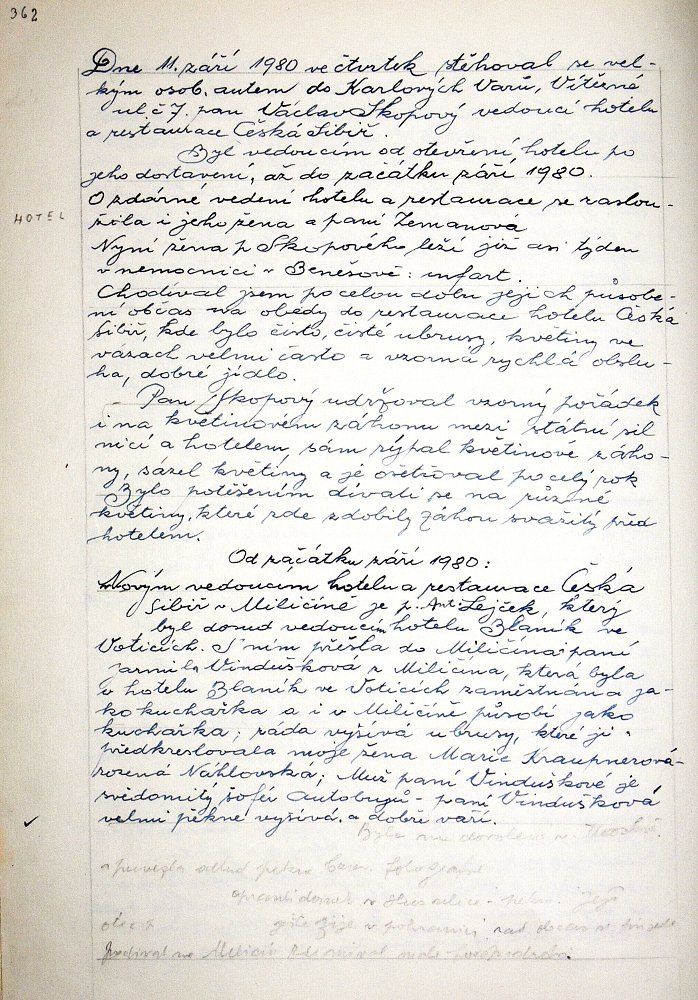 362
Dne 11. září 1980 ve čtvrtek stěhoval se vel-
kým osob. autem do Karlových Varů, Vítězná
ul č 7. pan Václav Skopový vedoucí hotelu
a restaurace Česká Sibiř.
Byl vedoucím od otevření hotelu po
jeho dostavení, až do začátku září 1980.
O zdárné vedení hotelu a restaurace se zaslou-
HOTEL
žila i jeho žena a paní Zemanová
Nyní žena p Skopového leží již asi týden
v nemocnici v Benešově: infart.
Chodíval jsem po celou dobu jejich působe-
ní občas na obědy do restaurace hotelu Česká
Sibiř, kde bylo čisto, čisté ubrusy, květiny ve
vázách velmi často a vzorná rychlá obslu-
ha, dobré jídlo.
- Pan Skopový udržoval vzorný pořádek
i na květinovém záhonu mezi státní sil
nicí a hotelem, sám rýpal květinové záho-
ny, sázel květiny a je ošetřoval po celý rok
Bylo potěšením dívati se na různé
květiny, které zde zdobily záhon svažitý před
hotelem.
Od začátku září 1980:
Novým vedoucím hotelu a restaurace Česká
Sibiř v Miličíně je p. Ant. Lejček, který
byl dosud vedoucím hotelu Blaník ve
Voticích. S ním přešla do Miličína paní
Jarmila Vindušková z Miličína, která byla
v hotelu Blaník ve Voticích zaměstnána ja-
ko kuchařka a i v Miličíně působí jako
kuchařka; ráda vyšívá ubrusy, které jí
předkreslovala moje žena Marie Kraupnerová
rozená Náhlovská; Muž paní Vinduškové je
svědomitý šofér Autobusů - paní Vindušková
velmi pěkně vyšívá. a dobře vaří.
Byla na dovolené v
a přivezla odtud pěkné barev. fotografie
pěkn. Její
otec
žije v pohraničí, rád
podíval na Miličín